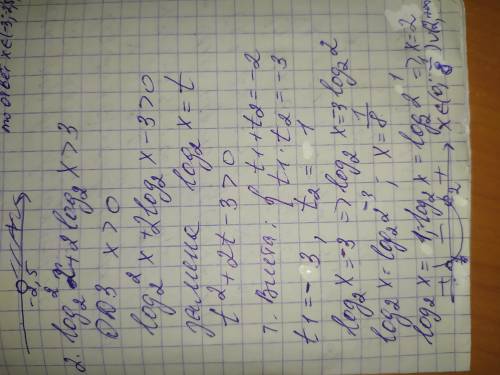 -2,5
2. log₂²x+2log₂x>3
ОДЗ x>0
log₂²x+2log₂x-3>0
замена log₂x=t
t²+2t-3>0
т. Виета: { t1+t2=-2
t1·t2=-3
t1=-3, t2=1
log₂x=-3 => log₂x=-3log₂2
log₂x=log₂2⁻³; x=1/8
log₂x=1; log₂x=log₂2¹ => x=2